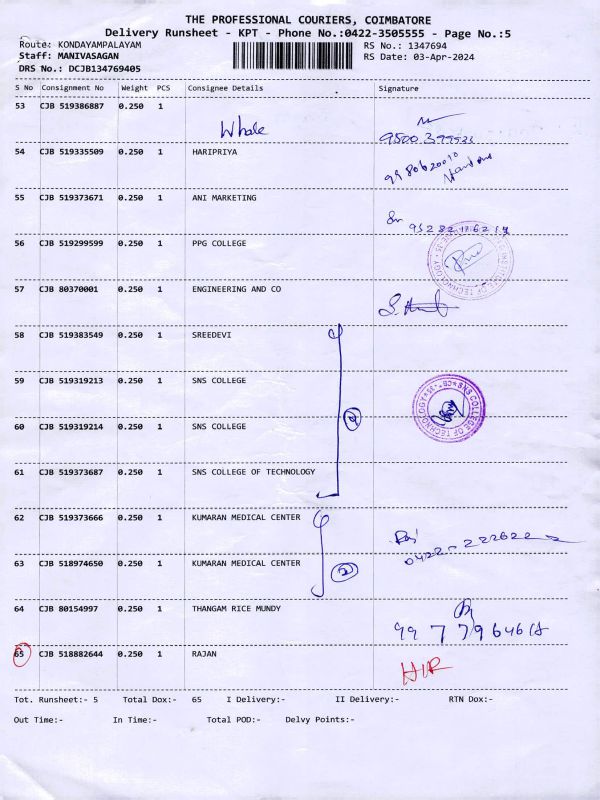 THE PROFESSIONAL COURIERS, COIMBATORE
Delivery Runsheet - KPT - Phone No.:0422-3505555 - Page No.:5
Route: KONDAYAMPALAYAM
RS No.: 1347694
Staff: MANIVASAGAN
RS Date: 03-Apr-2024
DRS No.: DCJB134769405
S No Consignment No Weight PCS Consignee Details Signature
53 CJB 519386887 0.250 1
Whale
54 CJB 519335509 0.250 1 HARIPRIYA
55 CJB 519373671 0.250 1 ANI MARKETING
56 CJB 519299599 0.250 1 PPG COLLEGE
57 CJB 80370001 0.250 1 ENGINEERING AND CO
58 CJB 519383549 0.250 1 SREEDEVI
59 CJB 519319213 0.250 1 SNS COLLEGE
SNS COLLEGE OF TECHNOLOGY
60 CJB 519319214 0.250 1 SNS COLLEGE
61 CJB 519373687 0.250 1 SNS COLLEGE OF TECHNOLOGY
62 CJB 519373666 0.250 1 KUMARAN MEDICAL CENTER
0422-222622
63 CJB 518974650 0.250 1 KUMARAN MEDICAL CENTER
2
64 CJB 80154997 0.250 1 THANGAM RICE MUNDY
65 CJB 518882644 0.250 1 RAJAN
Tot. Runsheet:- 5 Total Dox:- 65 I Delivery:- II Delivery:- RTN Dox:-
Out Time:- In Time:- Total POD:- Delvy Points:-